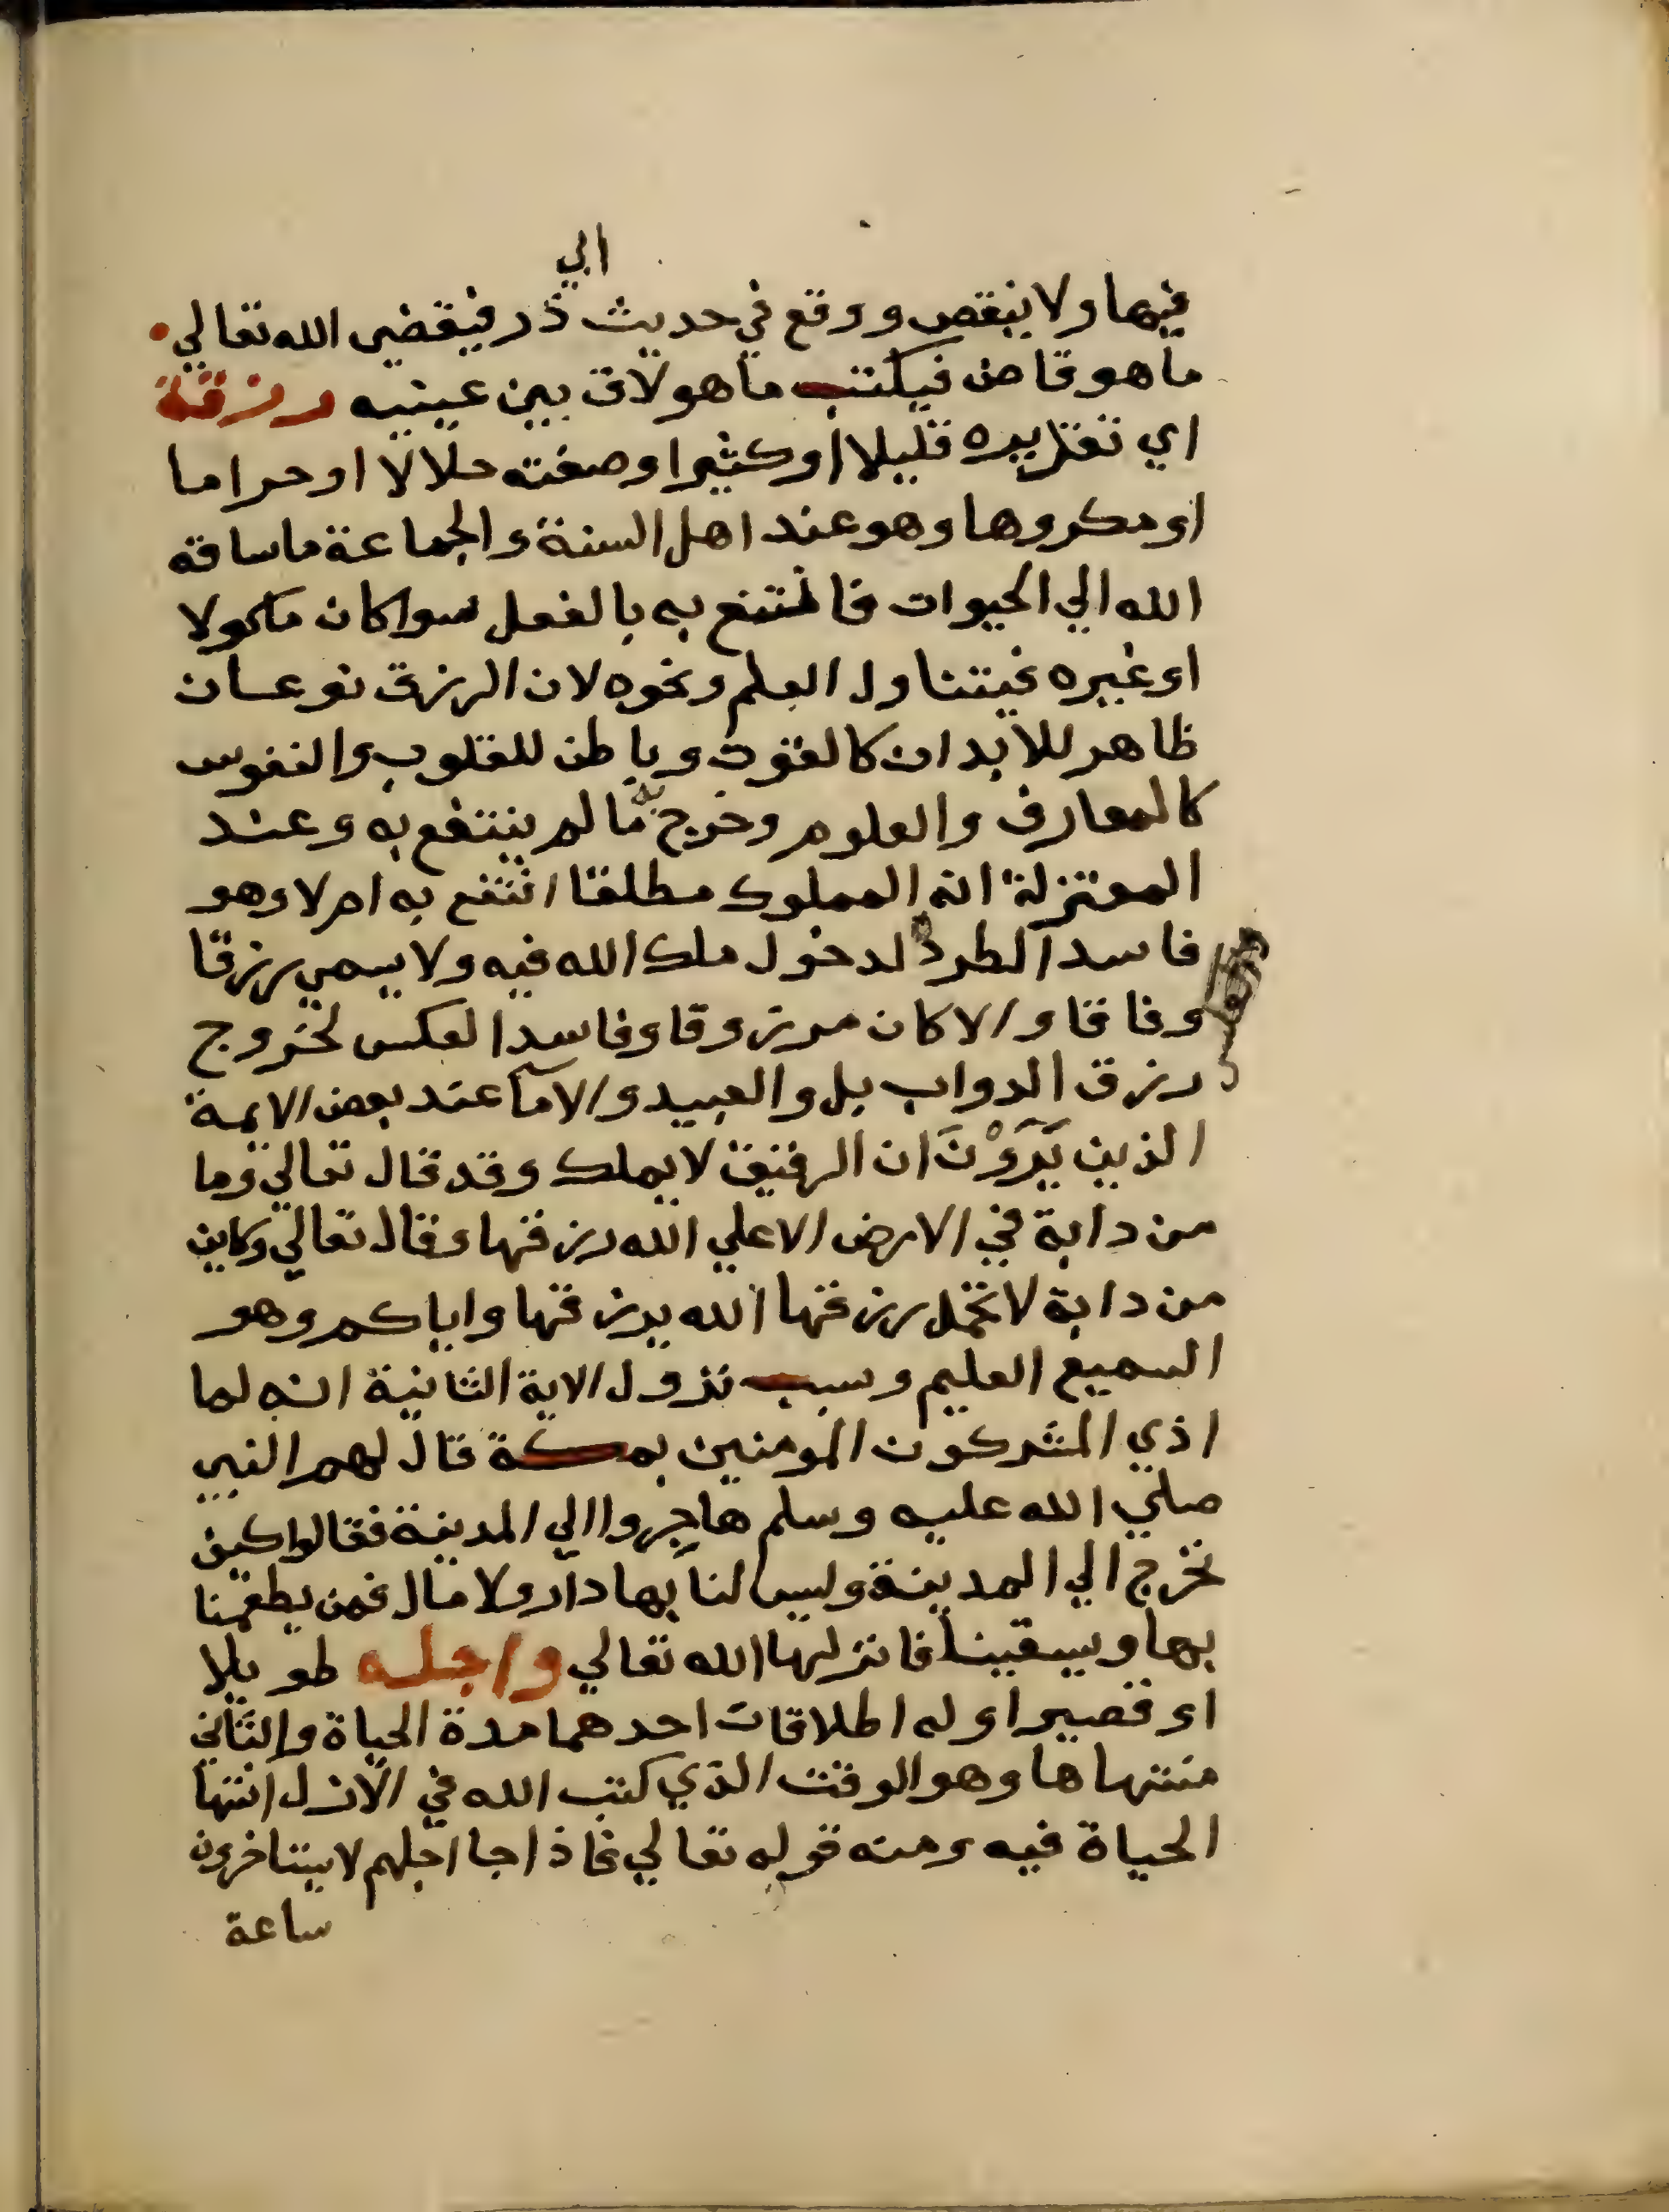 ابي
فيها ولا ينقص ووقع في حديث ذر فيقضي الله تعالي
ما هو قاض فيكتب ما هو لاق بين عينيه ورزقه
اي تقديره قليلا او كثيرا وصفته حلالا او حراما
او مكروها وهو عند اهل السنة والجماعة ما ساقه
الله الي الحيوان فانتفع به بالفعل سوا كان ماكولا
او غيره فيتناول العلم ونحوه لان الرزق نوعان
ظاهر للابدان كالقوت وباطن للقلوب والنفوس
كالمعارف والعلوم وخرج ما لم ينتفع به وعند
المعتزلة انه المملوك مطلقا انتفع به ام لا وهو
فاسد الطرد لدخول ملك الله فيه ولا يسمي رزقا
وفاقا والا كان مرزوقا وفاسد العكس لخروج
رزق الدواب بل والعبيد والامآ عند بعض الايمة
الذين يَرَوْنَ ان الرقيق لا يملك وقد قال تعالي وما
من دابة في الارض الا علي الله رزقها وقال تعالي وكاين
من دابة لا تحمل رزقها الله يرزقها واياكم وهو
السميع العليم وسبب نزول الاية الثانية انه لما
اذي المشركون المومنين بمكة قال لهم النبي
صلي الله عليه وسلم هاجِروا الي المدينة فقالوا كيف
نخرج الي المدينة وليس لنا بها دار ولا مال فمن يطعمنا
بها ويسقينا فانزلها الله تعالي واجله طويلا
او قصيرا وله اطلاقات احدهما مدة الحياة والثاني
منتهاها وهو الوقت الذي كتب الله في الازل انتها
الحياة فيه ومنه قوله تعالي فاذا جا اجلهم لا يستاخرون
ساعة